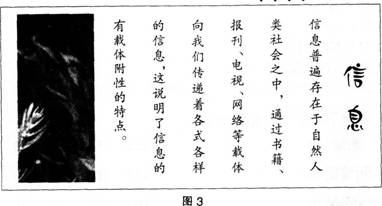 信息
信息普遍存在于自然人
类社会之中，通过书籍、
报刊、电视、网络等载体
向我们传递着各式各样
的信息，这说明了信息的
有载体附性的特点。
图3